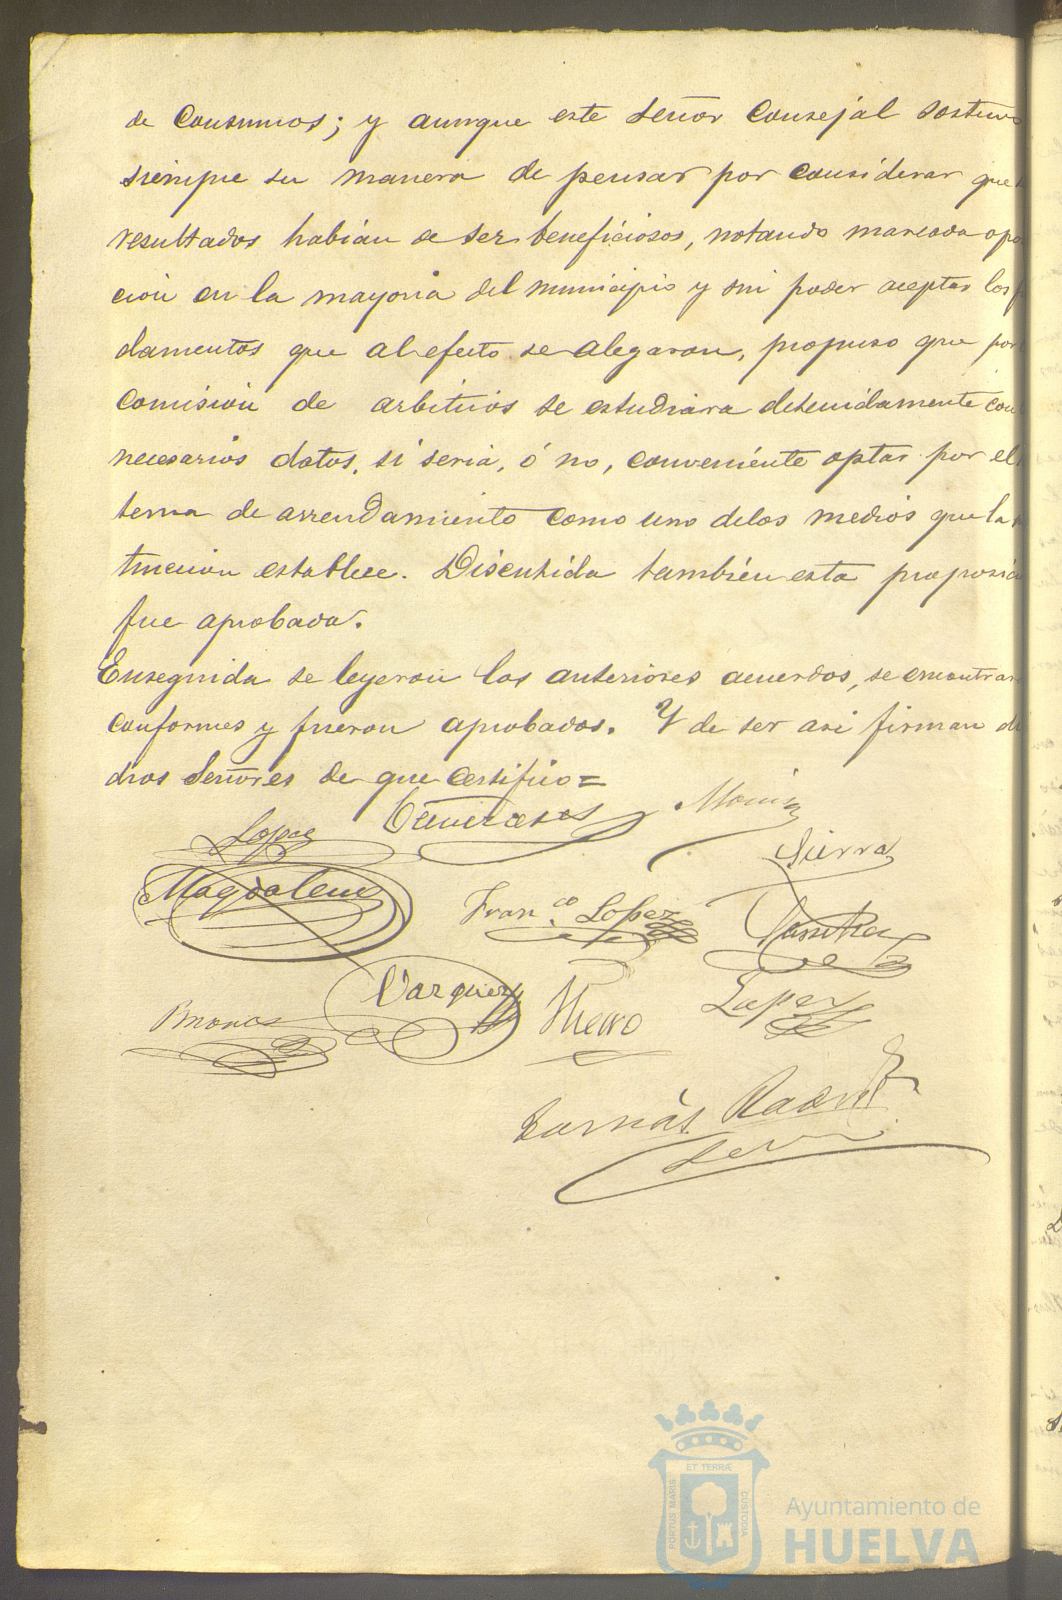 de Consumos; y aunque este Señor Consejál sostuvo
siempre su manera de pensar por considerar que
resultados habian de ser beneficiosos, notando marcada opo
cion en la mayoria del municipio y sin poder aceptar los
damentos que al efecto se alegaron, propuso que por
Comision de arbitrios se estudiara detenidamente con
necesarios datos, si seria, ó no, conveniente optar por el
tema de arrendamiento como uno delos medios que la
truccion establece. Discutida tambien esta proposici
fue aprobada.
Enseguida se leyeron los anteriores acuerdos, se encontrar
conformes y fueron aprobados. Y de ser asi firman di
chos Señores de que certifico=
Lopez
Magdalena
Franco. Lopez
Sierra
Vazquez
Lopez
ET TERRÆ
PORTUS MARIS
CUSTODIA
Ayuntamiento de
HUELVA